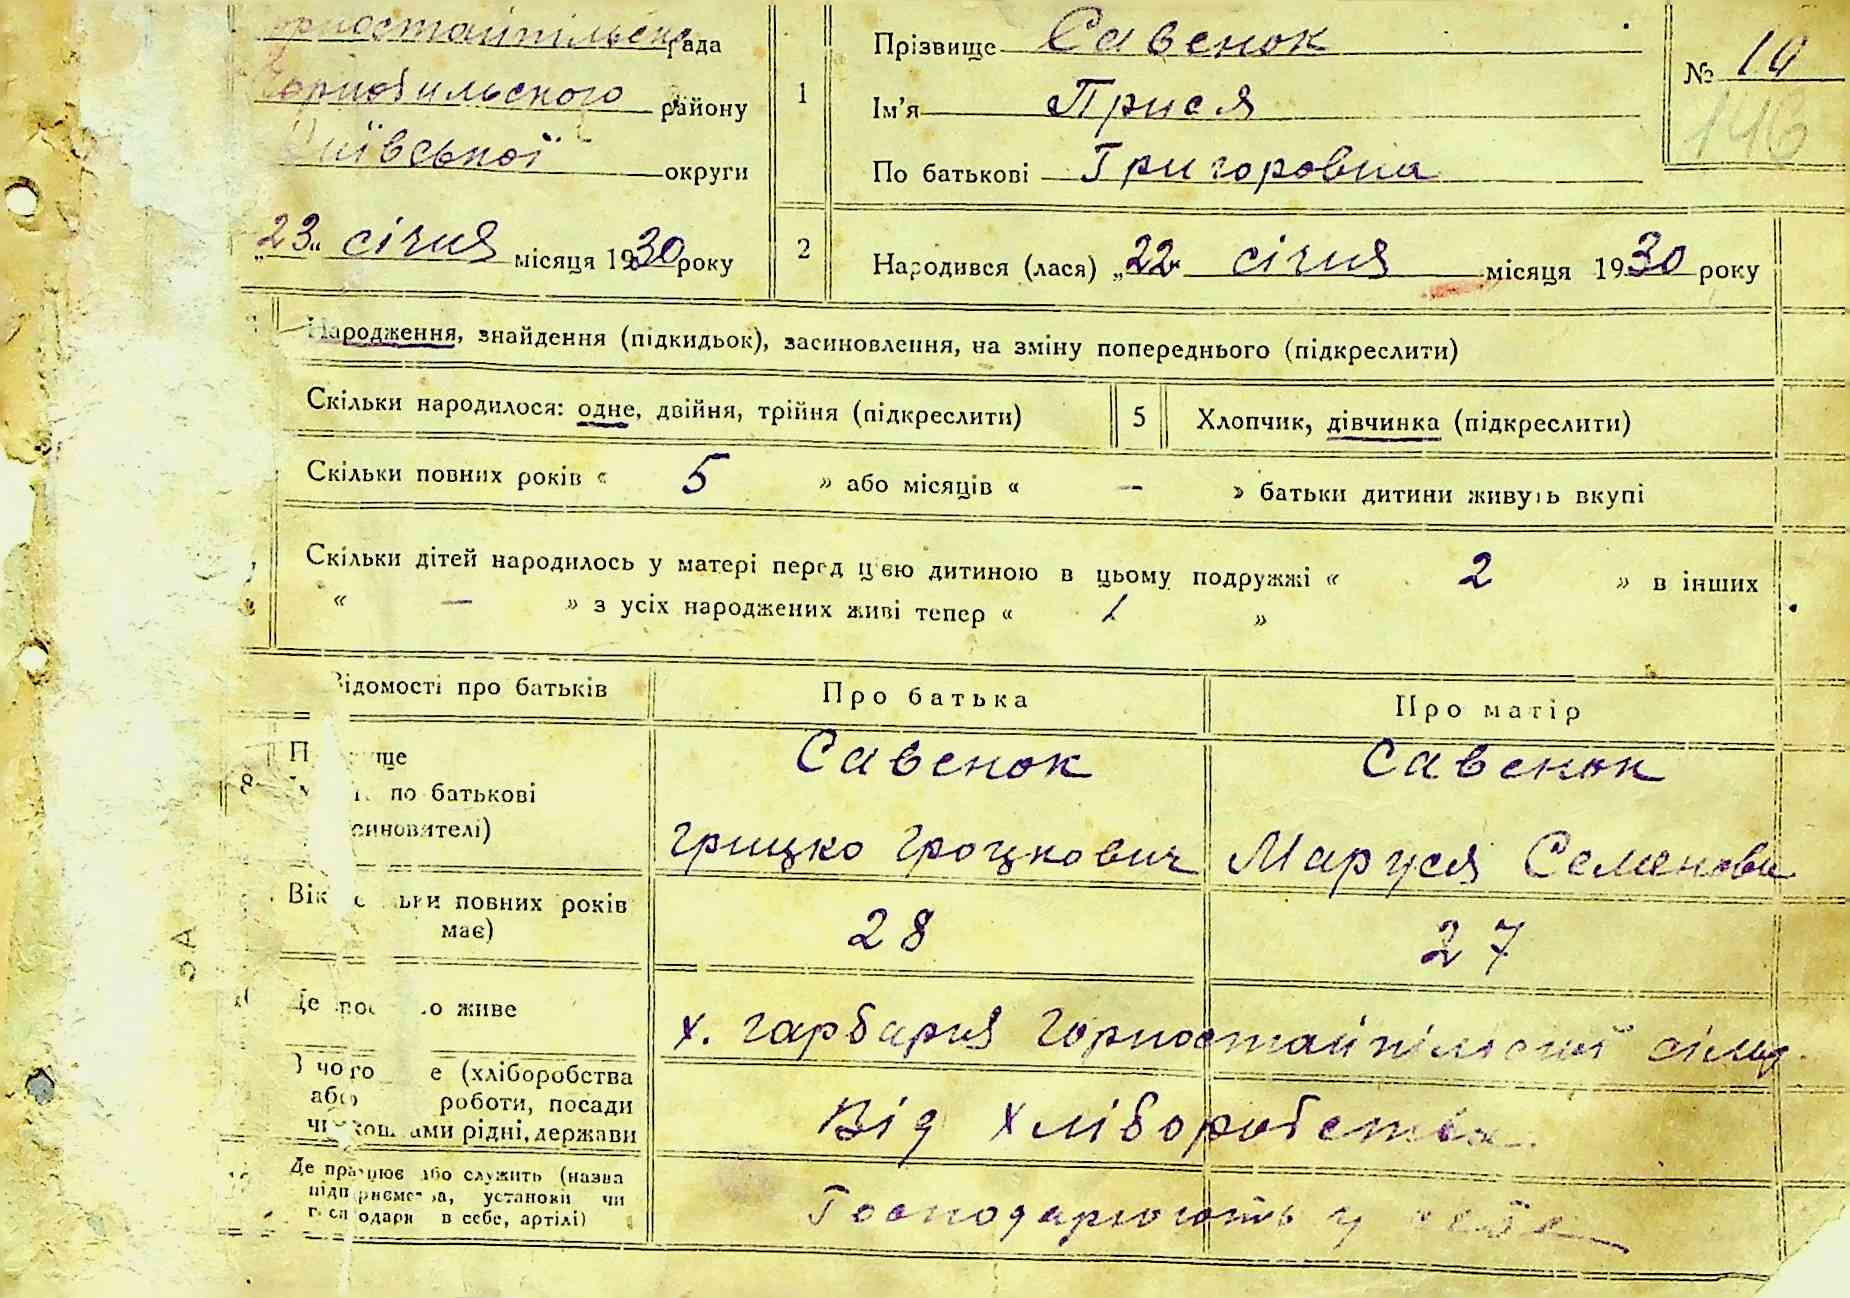 рада
Чорнобильського району
Київської округи
„23“ січня місяця 1930 року
1
Прізвище Савенок
Ім'я Прися
По батькові Григоровна
№ 19
146
2
Народився (лася) „22“ січня місяця 1930 року
Народження, знайдення (підкидьок), засиновлення, на зміну попереднього (підкреслити)
Скільки народилося: одне, двійня, трійня (підкреслити)
5
Хлопчик, дівчинка (підкреслити)
Скільки повних років « 5 » або місяців « — » батьки дитини живуть вкупі
Скільки дітей народилось у матері перед цією дитиною в цьому подружжі « 2 » в інших
« — » з усіх народжених живі тепер « 1 »
Відомості про батьків
Про батька
Про матір
по батькові
Савенок
Грицко Гроцкович
Савенок
Маруся Семеновн
повних років
має)
28
27
живе
х. Гарбарня Горностайпільської сільр.
(хліборобства
або роботи, посади
рідні, держави
Від хліборобства
Де працює або служить (назва
підприємства, установи чи
господаря в себе, артілі)
Господарюють у себе